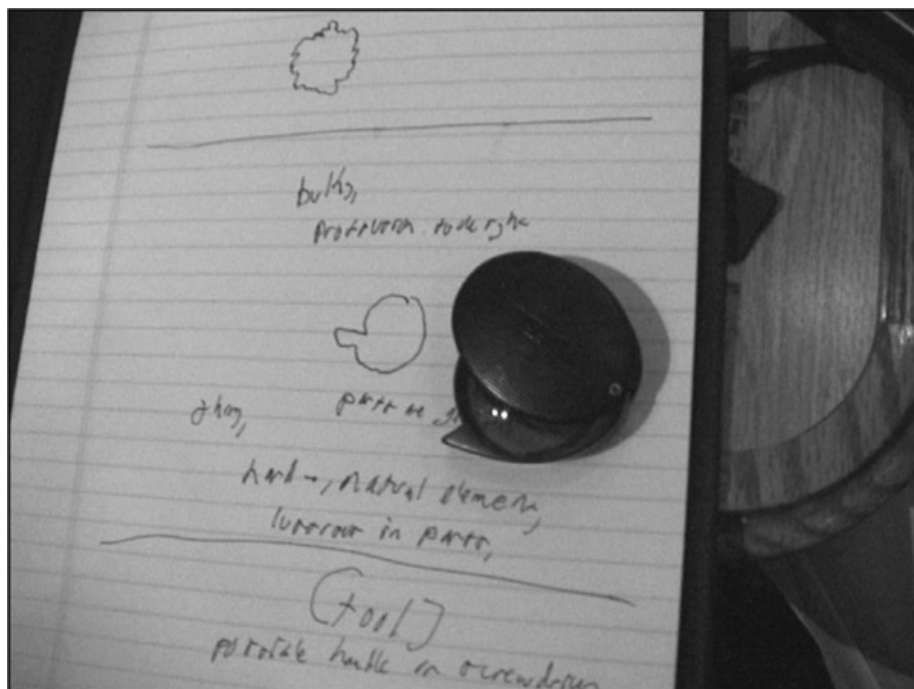 bulky,
protrusion to the right
shiny,
hard, natural element,
lustrous in parts,
(tool)
portable handle on screwdriver